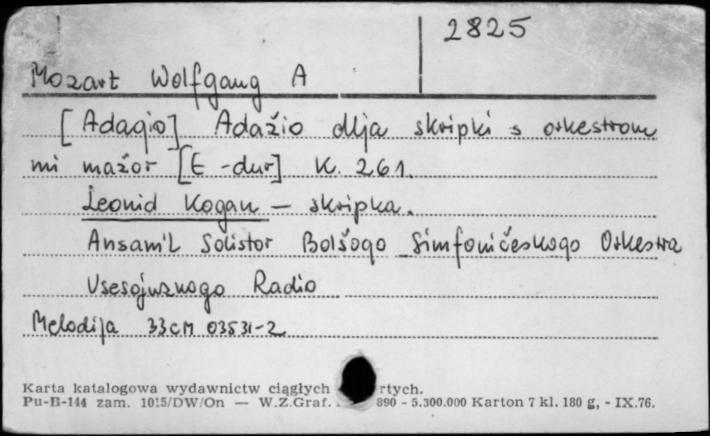 2825
Mozart Wolfgang A
[Adagio] Adažio dlja skripki s orkestrom
mi mažor [E-dur] K. 261.
Leonid Kogan – skripka.
Ansam'l Solistor Bolšogo Simfoničeskogo Orkestra
Vsesojuznogo Radio
Melodija 33CM 03531-2
Karta katalogowa wydawnictw ciągłych rtych.
Pu-B-144 zam. 1015/DW/On — W.Z.Graf. 890 - 5.300.000 Karton 7 kl. 180 g, - IX.76.